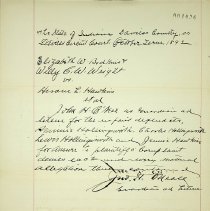 The State of Indiana Daviess County, ss
Daviess Circuit Court October Term. 1892
Elizabeth W
Willy C. W. Wright
vs
L Hawkins
et al
John H. O'Neal as Guardian ad
Litem for the infant defendants
Hollingsworth Charles Hollingsworth
Lewis Hollingsworth and James Hawkins
for answer to plaintiffs Complaint
denies each and every material
allegation therein
Jno. H. O'Neall
Guardian ad Litem